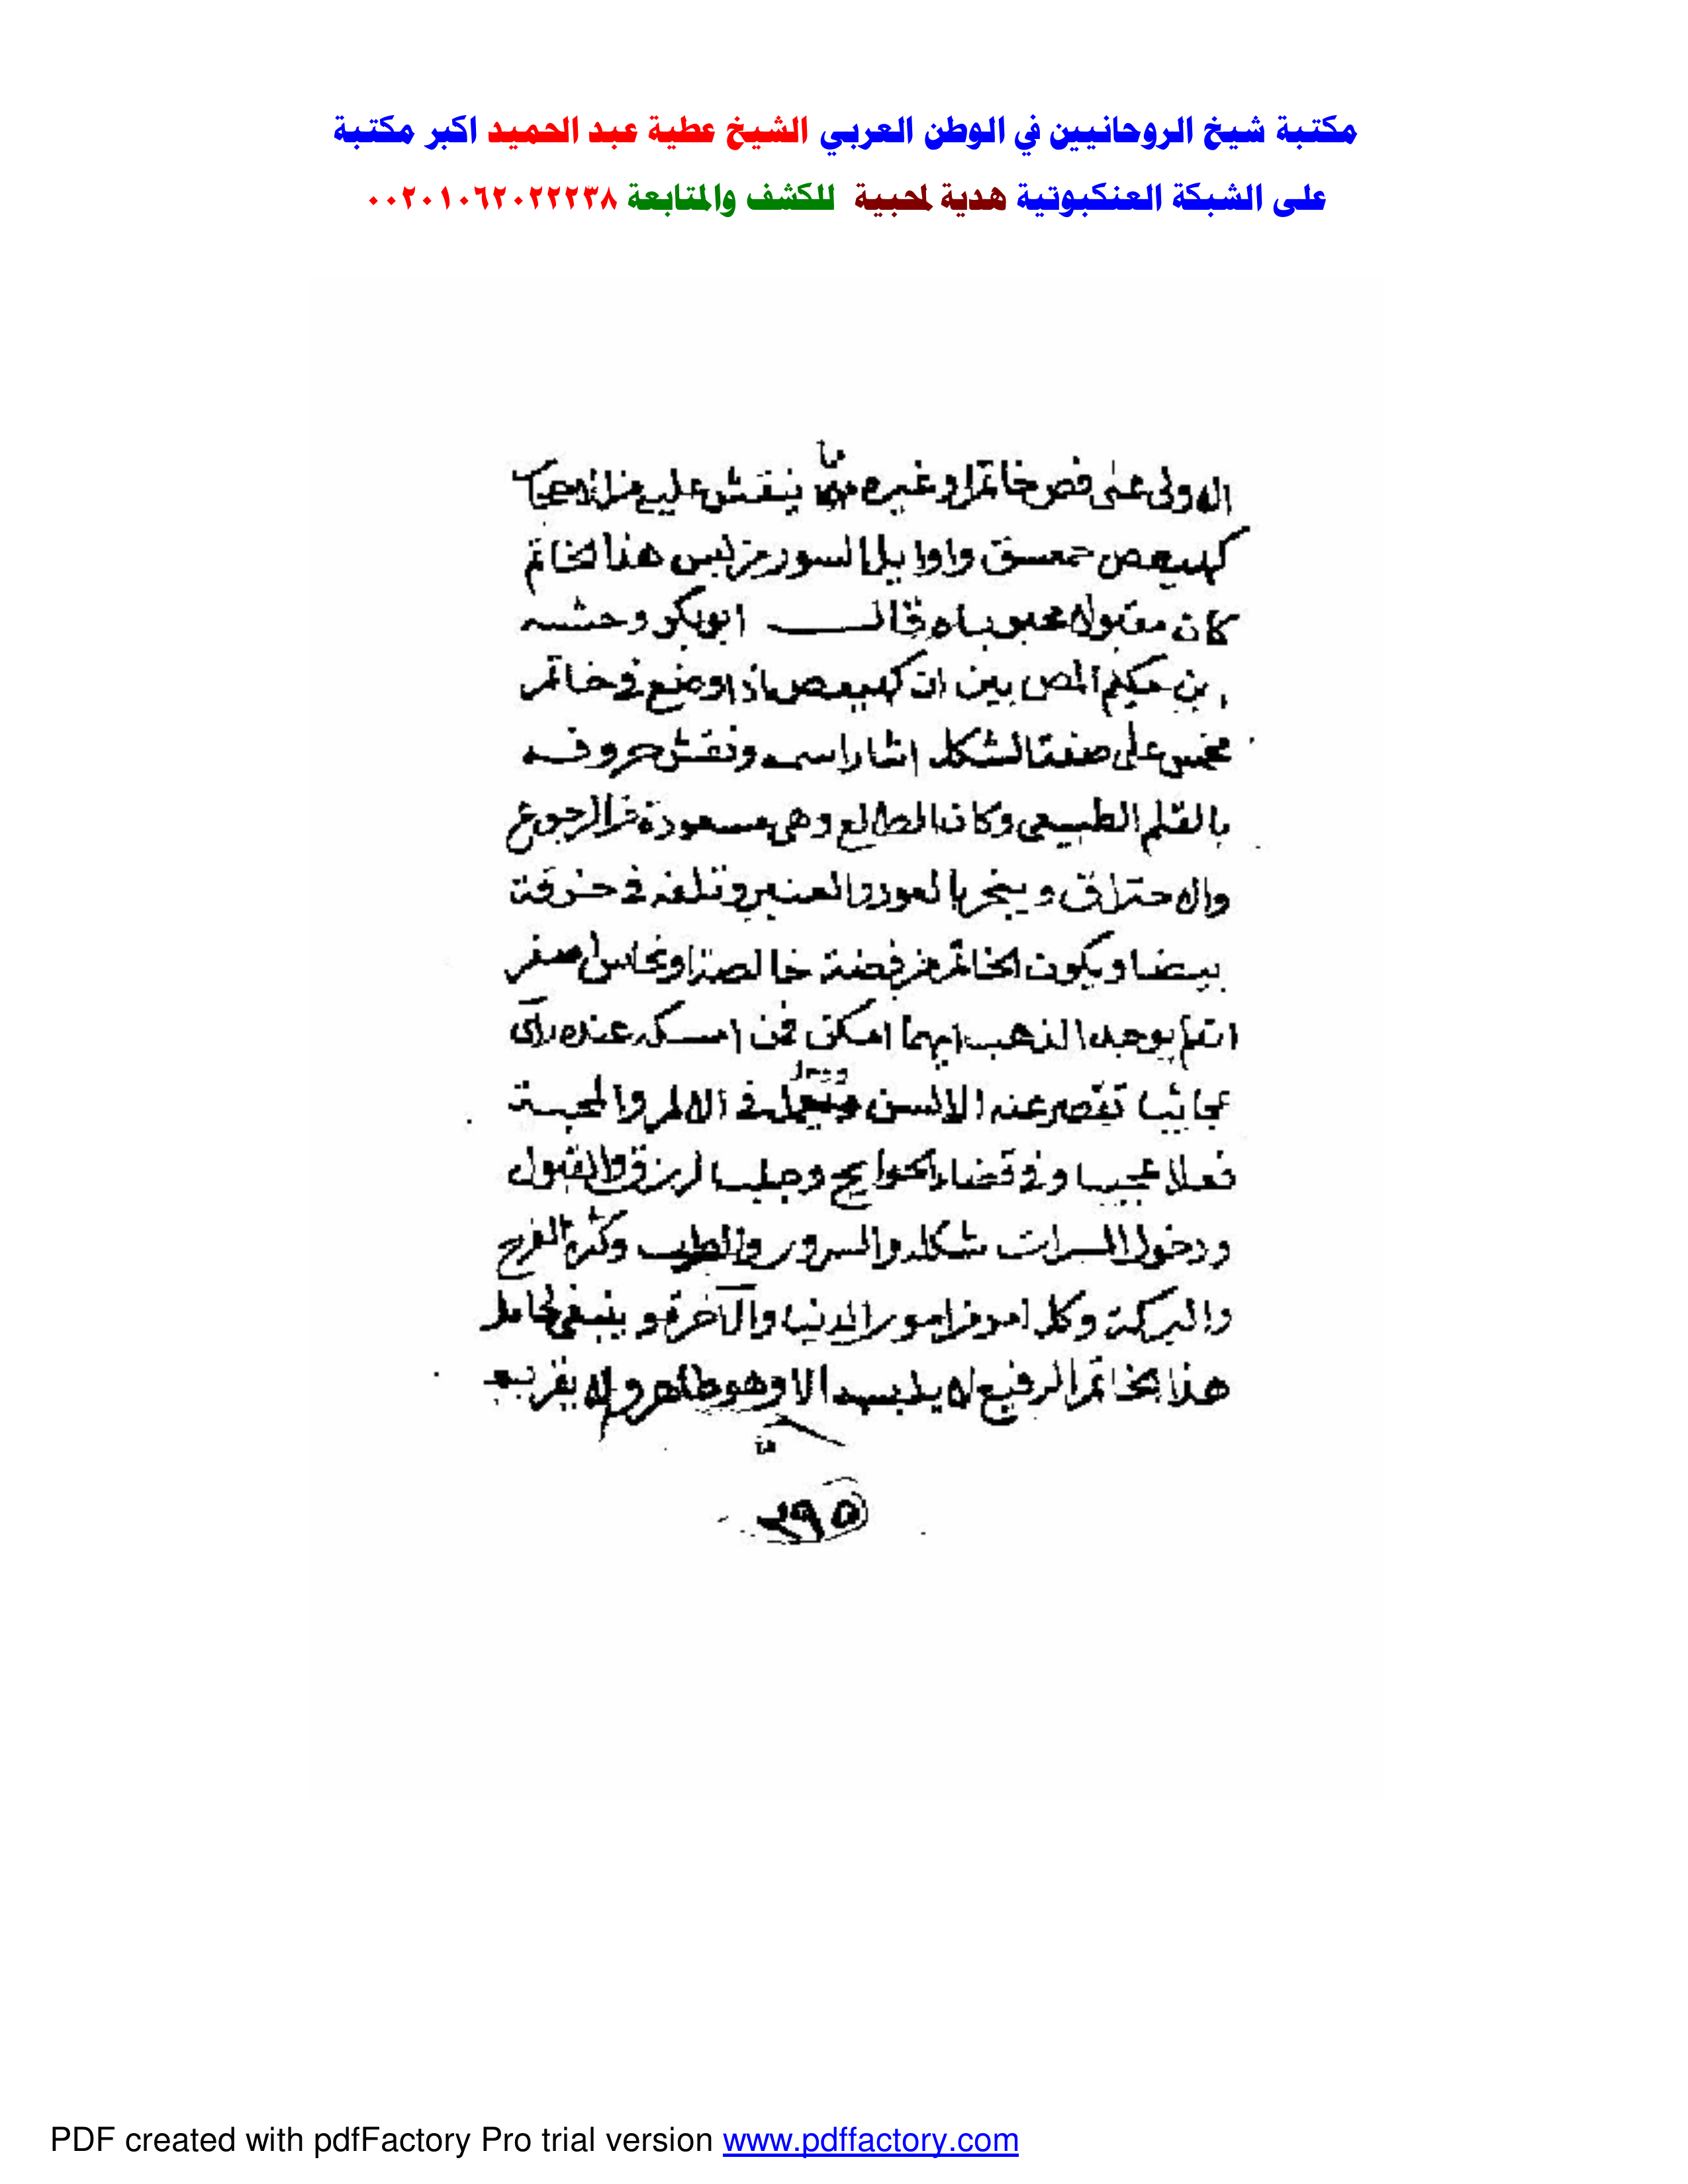 مكتبة شيخ الروحانيين في الوطن العربي الشيخ عطية عبد الحميد اكبر مكتبة
على الشبكة العنكبوتية هدية لمحبية للكشف والمتابعة ٠٠٢٠١٠٦٢٠٢٢٢٣٨
الاولى على فص خاتم او غيره مما ينقش عليه من الاحجار
كهيعص حمعسق واوايل السور من لبس هذا الخاتم
كان مقبولا محبوبا وقال ابو بكر وحشيه
بن حكيم المص بين ان كهيعص اذا وضع في خاتم
مخمس على صفة الشكل اشار اسمه ونقش حروفه
بالقلم الطبيعي وكان الطالع وهي مسعودة من الرجوع
والاحتراق ويبخر بالعود والعنبر وتلفه في خرقة
بيضا ويكون الخاتم من فضة خالصة او نحاس اصفر
ان لم يوجد الذهب ايهما امكن فمن امسكه عنده راى
عجائبا تقصر عنه الالسن ويفعل في الالم والمحبة
فعلا عجيبا وفي قضاء الحوايج وجلب الرزق والقبول
ودخول المسرات شكله والسرور والطيب وكثرة الفرح
والبركة وكل امر من امور الدنيا والآخرة وينبغي لحامل
هذا الخاتم الرفيع لا يلبسه الا وهو طاهر ولا يقربه
٢٩٥
PDF created with pdfFactory Pro trial version www.pdffactory.com